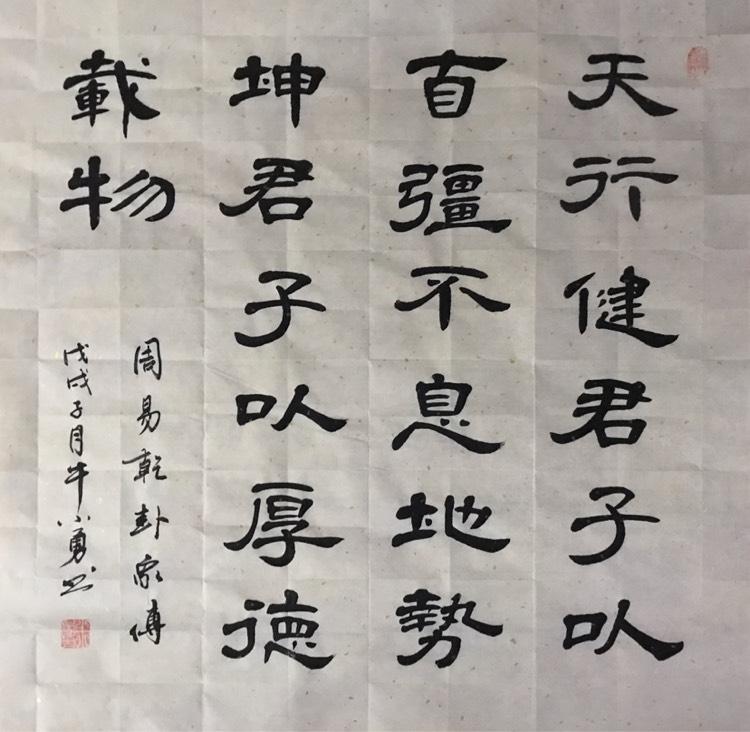 天行健君子以
自彊不息地勢
坤君子以厚德
載物
周易乾卦象傳
戊戌子月牛小勇书